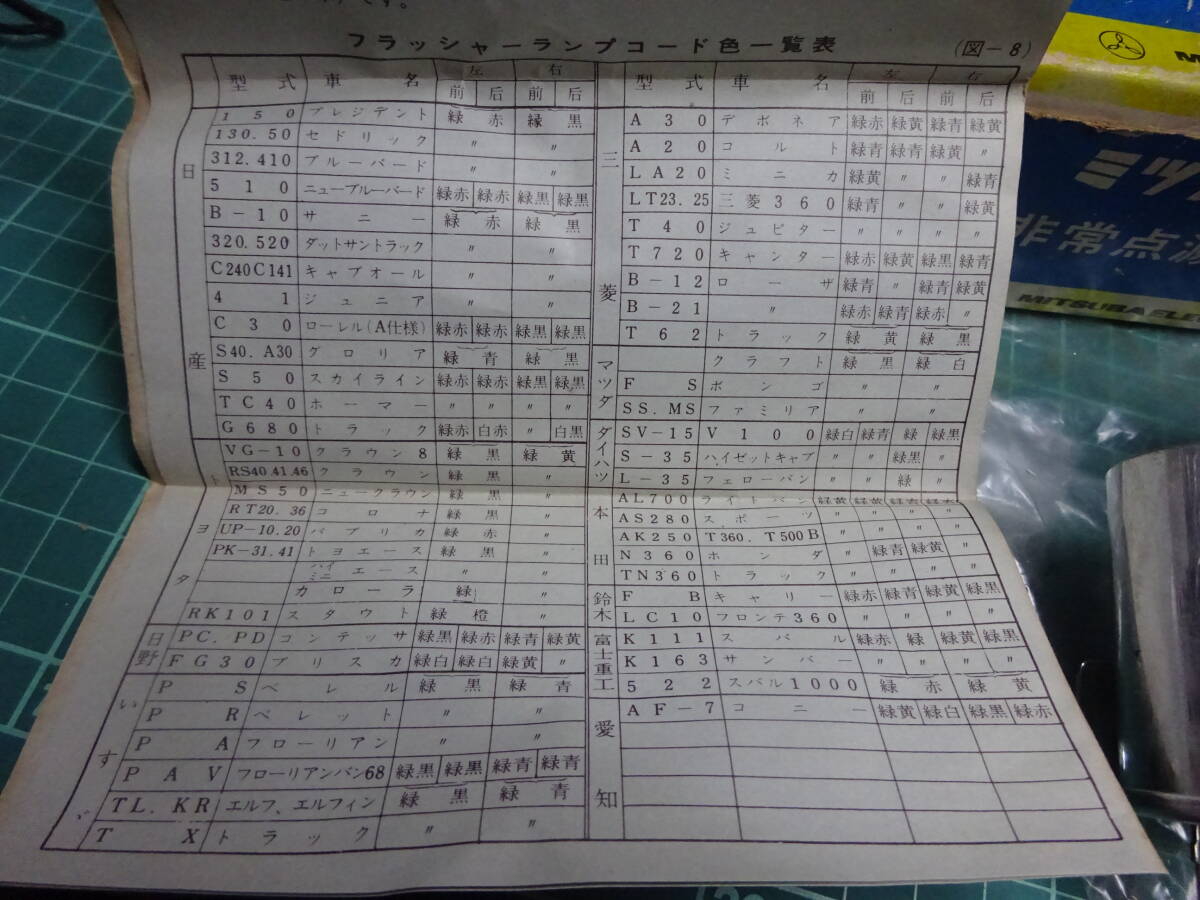 です。
フラッシャーランプコード色一覧表 (図-8)
型式 車名 左 右
前 后 前 后
日産
150 プレジデント 緑赤 緑黒
130.50 セドリック 〃 〃
312.410 ブルーバード 〃 〃
510 ニューブルーバード 緑赤 緑赤 緑黒 緑黒
B-10 サニー 緑赤 緑黒
320.520 ダットサントラック 〃 〃
C240C141 キャブオール 〃 〃
41 ジュニア 〃 〃
C30 ローレル(A仕様) 緑赤 緑赤 緑黒 緑黒
S40.A30 グロリア 緑青 緑黒
S50 スカイライン 緑赤 緑赤 緑黒 緑黒
TC40 ホーマー 〃 〃 〃 〃
G680 トラック 緑赤 白赤 〃 白黒
トヨタ
VG-10 クラウン8 緑黒 緑黄
RS40.41.46 クラウン 緑黒 〃
MS50 ニュークラウン 緑黒 〃
RT20.36 コロナ 緑黒 〃
UP-10.20 パブリカ 緑赤 〃
PK-31.41 トヨエース 緑黒 〃
ハイミニエース 〃 〃
カローラ 緑 〃
RK101 スタウト 緑橙 〃
日野
PC.PD コンテッサ 緑黒 緑赤 緑青 緑黄
FG30 ブリスカ 緑白 緑白 緑黄 〃
いすゞ
PS ベレル 緑黒 緑青
PR ベレット 〃 〃
PA フローリアン 〃 〃
PAV フローリアンバン68 緑黒 緑黒 緑青 緑青
TL.KR エルフ、エルフィン 緑黒 緑青
TX トラック 〃 〃
型式 車名 左 右
前 后 前 后
三菱
A30 デボネア 緑赤 緑黄 緑青 緑黄
A20 コルト 緑青 緑青 緑黄 〃
LA20 ミニカ 緑黄 〃 〃 緑青
LT23.25 三菱360 緑青 〃 〃 緑黄
T40 ジュピター 〃 〃 〃 〃
T720 キャンター 緑赤 緑黄 緑黒 緑青
B-12 ローザ 緑青 〃 緑青 緑黄
B-21 〃 緑赤 緑青 緑赤 〃
T62 トラック 緑黄 緑黒
マツダ
クラフト 緑黒 緑白
FS ボンゴ 〃 〃
SS.MS ファミリア 〃 〃
ダイハツ
SV-15 V100 緑白 緑青 緑 緑黒
S-35 ハイゼットキャブ 〃 〃 緑黒 〃
L-35 フェローバン 〃 〃 緑 〃
本田
AL700 ライトバン 緑黄 緑黄
AS280 スポーツ 〃 〃 〃 〃
AK250 T360.T500B 〃 〃 〃 〃
N360 ホンダ 〃 緑青 緑黄 〃
TN360 トラック 〃 〃 〃 〃
鈴木
FB キャリー 緑赤 緑青 緑黄 緑黒
LC10 フロンテ360 〃 〃 〃 〃
富士重工
K111 スバル 緑赤 緑 緑黄 緑黒
K163 サンバー 〃 〃 〃 〃
522 スバル1000 緑赤 緑黄
愛知
AF-7 コニー 緑黄 緑白 緑黒 緑赤
ミツ
非常点滅
MITSUBA ELE